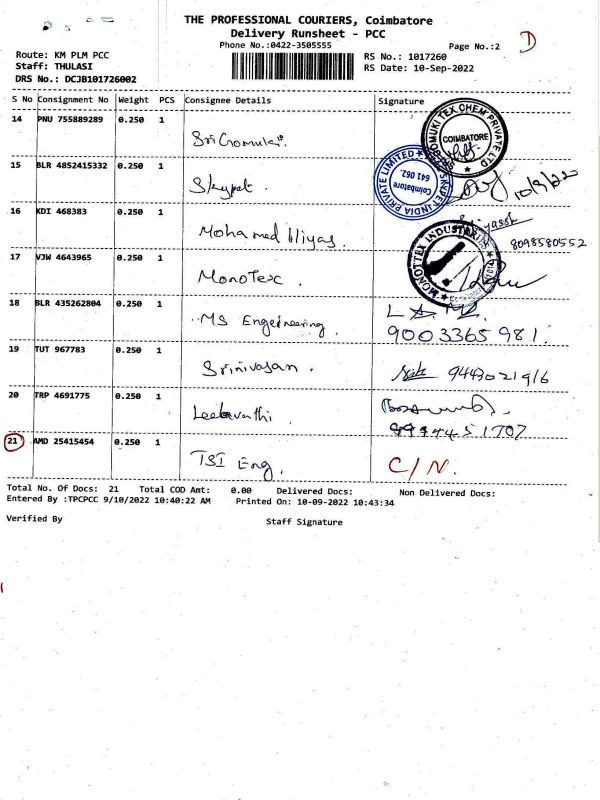 THE PROFESSIONAL COURIERS, Coimbatore
Delivery Runsheet - PCC
Phone No.:0422-3505555
Page No.:2
D
Route: KM PLM PCC
Staff: THULASI
DRS No.: DCJB101726002
RS No.: 1017260
RS Date: 10-Sep-2022
S No Consignment No Weight PCS Consignee Details Signature
14 PNU 755889289 0.250 1
Sri Gomuki
COIMBATORE
15 BLR 4852415332 0.250 1
Skypet.
PRIVATE LIMITED
Coimbatore
641 062.
10/9/22
16 KDI 468383 0.250 1
Mohamed Iliyas.
8098580552
17 VJW 4643965 0.250 1
Monotex.
MONOTTEX INDUSTRIES
18 BLR 435262804 0.250 1
MS Engeineering.
9003365981.
19 TUT 967783 0.250 1
Srinivasan.
9443021916
20 TRP 4691775 0.250 1
Leelavathi
9994451707
21 AMD 25415454 0.250 1
TSI Eng.
C/N.
Total No. Of Docs: 21 Total COD Amt: 0.00 Delivered Docs: Non Delivered Docs:
Entered By :TPCPCC 9/10/2022 10:40:22 AM Printed On: 10-09-2022 10:43:34
Verified By
Staff Signature